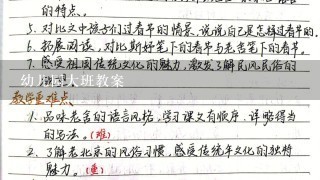 的特点。
5. 对比文中孩子们过春节的情景,说说自己是怎样过春节的。
6. 拓展阅读,对比斯妤笔下的春节与老舍笔下的春节。
7. 感受祖国传统文化的魅力,激发了解民风民俗的
幼儿园大班教案
教学重难点
1. 品味老舍的语言风格,学习课文有顺序、详略得当
的写法。(难)
2. 了解老北京的风俗习惯,感受传统年文化的独特
魅力。(重)